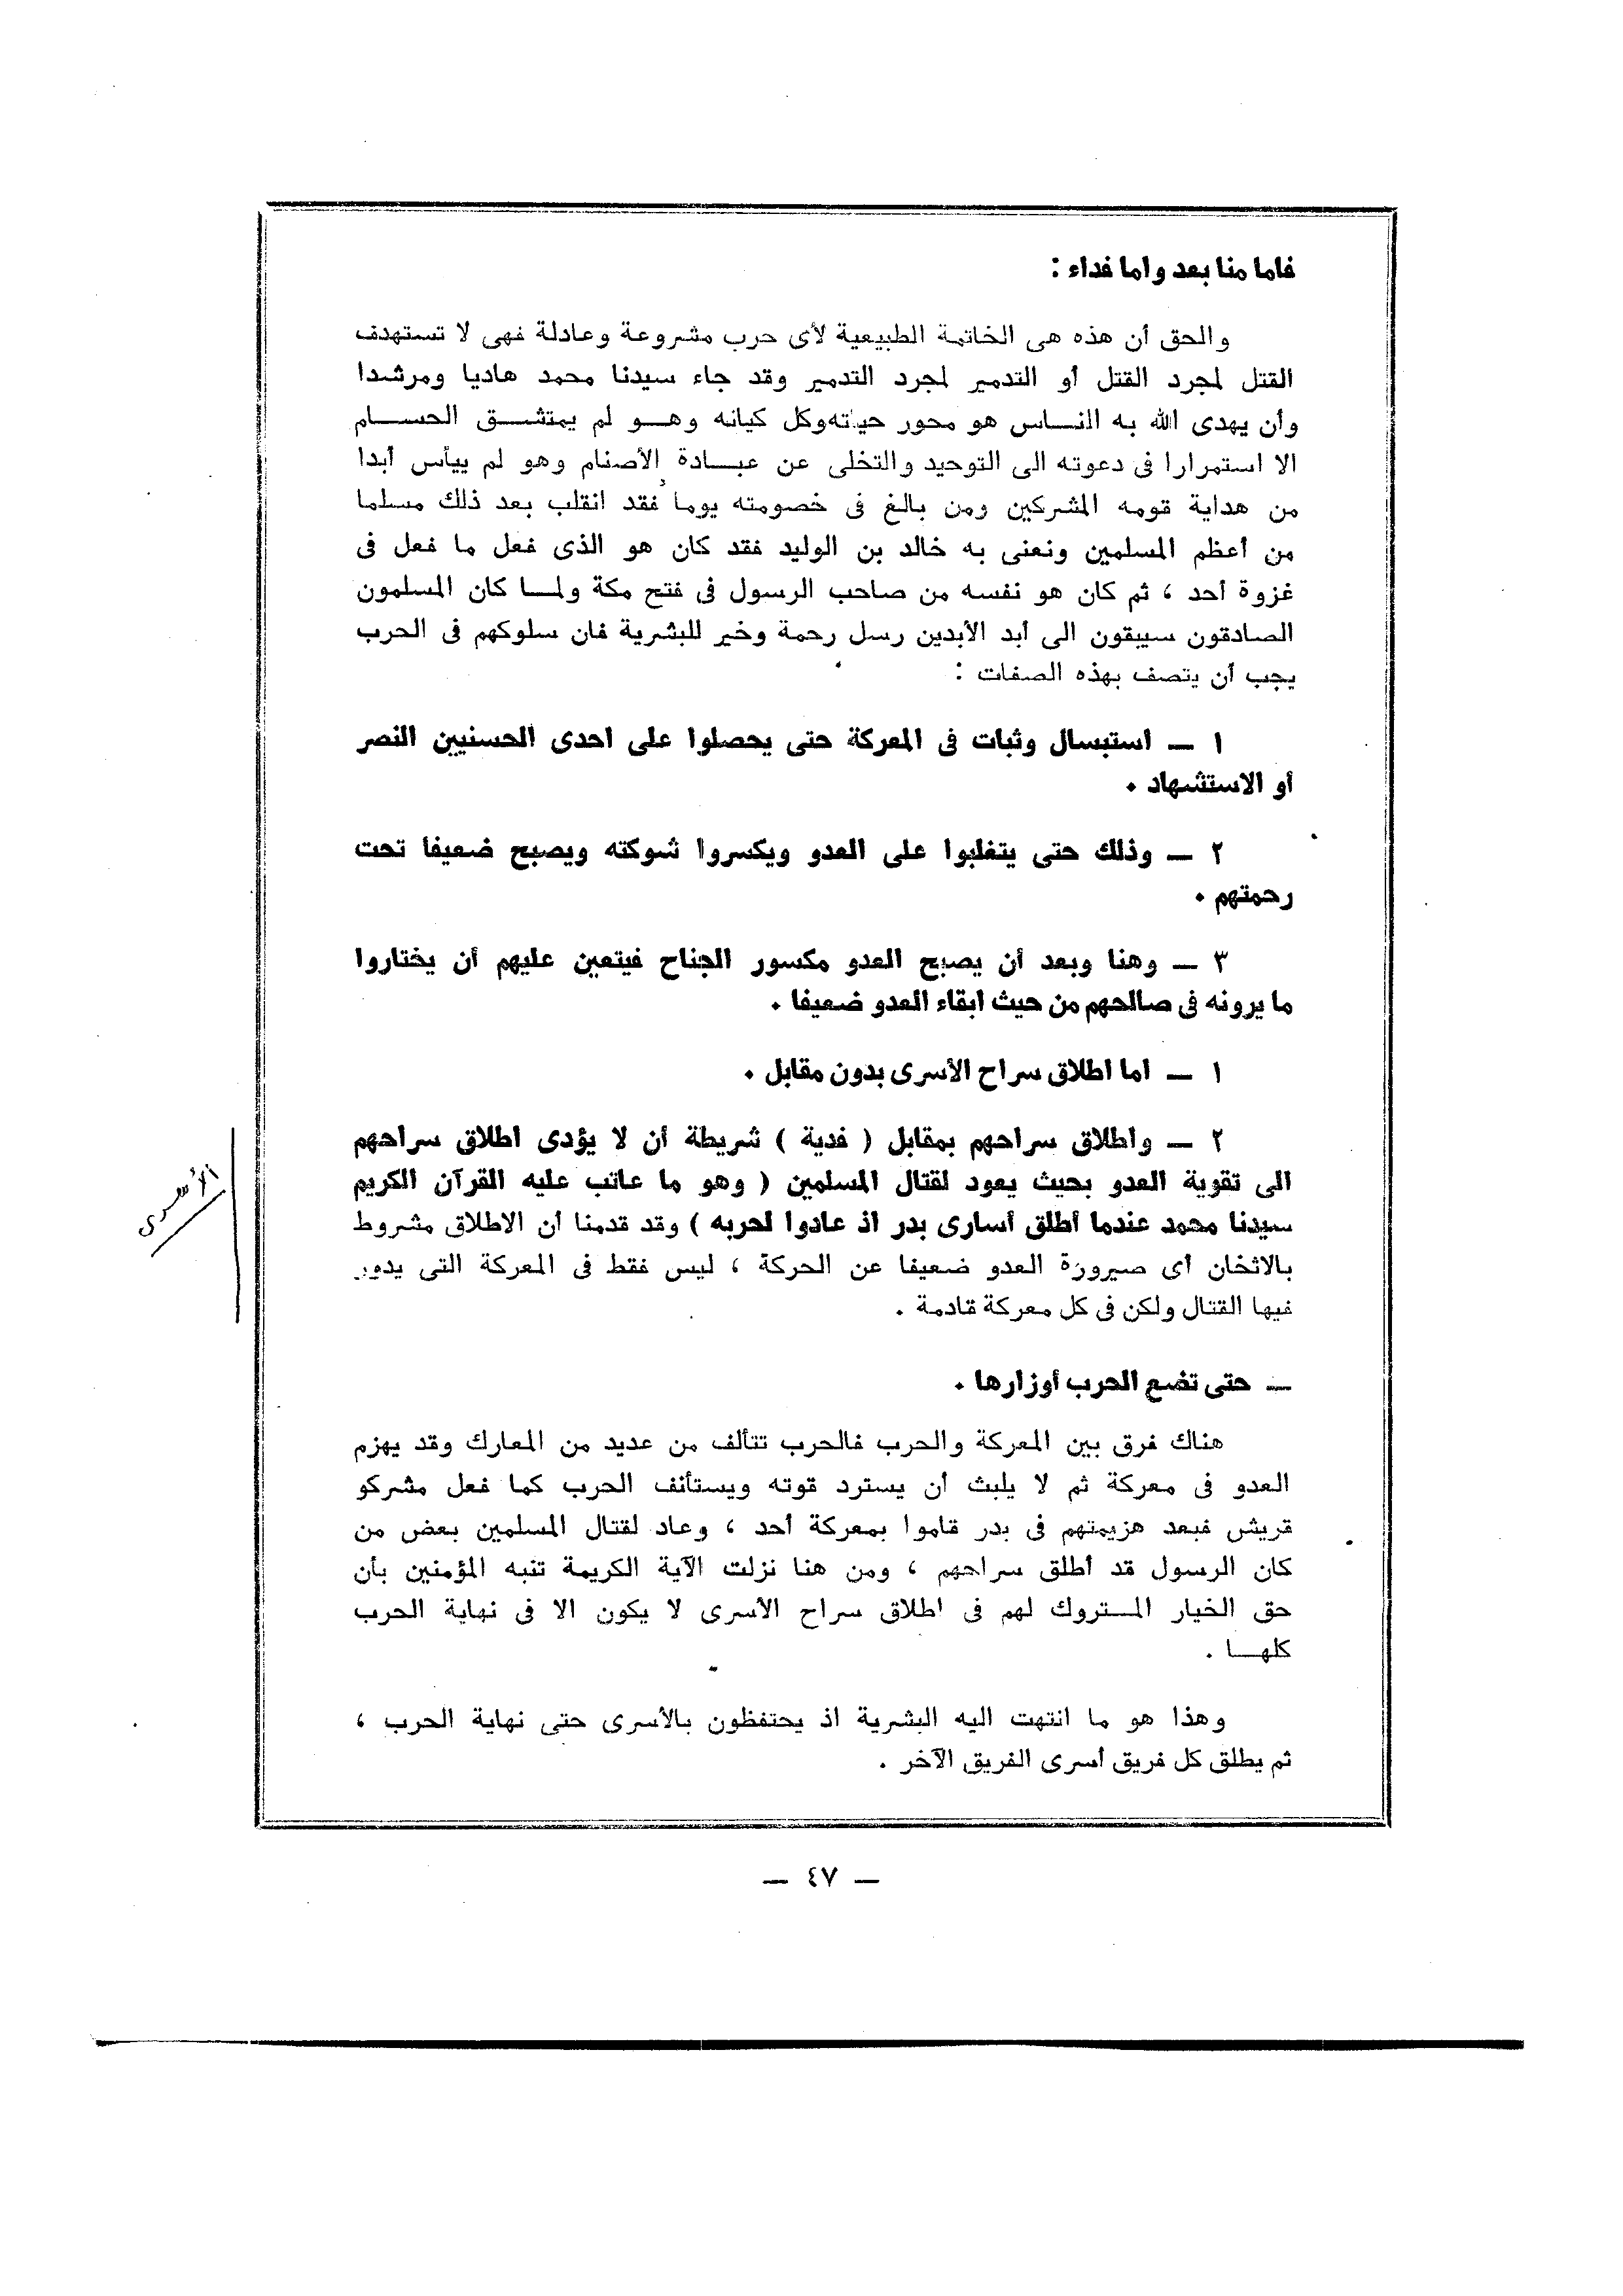 فاما منا بعد واما فداء :
والحق أن هذه هى الخاتمة الطبيعية لأى حرب مشروعة وعادلة فهى لا تستهدف
القتل لمجرد القتل أو التدمير لمجرد التدمير وقد جاء سيدنا محمد هاديا ومرشدا
وأن يهدى الله به النـــاس هو محور حياته وكل كيانه وهـــو لم يمتشـــق الحســـام
الا استمرارا فى دعوته الى التوحيد والتخلى عن عبـــادة الأصنام وهو لم ييأس أبدا
من هداية قومه المشركين ومن بالغ فى خصومته يوما فقد انقلب بعد ذلك مسلما
من أعظم المسلمين ونعنى به خالد بن الوليد فقد كان هو الذى فعل ما فعل فى
غزوة أحد ، ثم كان هو نفسه من صاحب الرسول فى فتح مكة ولمـــا كان المسلمون
الصادقون سيبقون الى أبد الأبدين رسل رحمة وخير للبشرية فان سلوكهم فى الحرب
يجب أن يتصف بهذه الصفات :
١ — استبسال وثبات فى المعركة حتى يحصلوا على احدى الحسنيين النصر
أو الاستشهاد .
٢ — وذلك حتى يتغلبوا على العدو ويكسروا شوكته ويصبح ضعيفا تحت
رحمتهم .
٣ — وهنا وبعد أن يصبح العدو مكسور الجناح فيتعين عليهم أن يختاروا
ما يرونه فى صالحهم من حيث ابقاء العدو ضعيفا .
١ — اما اطلاق سراح الأسرى بدون مقابل .
٢ — واطلاق سراحهم بمقابل ( فدية ) شريطة أن لا يؤدى اطلاق سراحهم
الى تقوية العدو بحيث يعود لقتال المسلمين ( وهو ما عاتب عليه القرآن الكريم
سيدنا محمد عندما أطلق أسارى بدر اذ عادوا لحربه ) وقد قدمنا أن الاطلاق مشروط
بالاثخان أى صيرورة العدو ضعيفا عن الحركة ، ليس فقط فى المعركة التى يدور
فيها القتال ولكن فى كل معركة قادمة .
الأسرى
— حتى تضع الحرب أوزارها .
هناك فرق بين المعركة والحرب فالحرب تتألف من عديد من المعارك وقد يهزم
العدو فى معركة ثم لا يلبث أن يسترد قوته ويستأنف الحرب كما فعل مشركو
قريش فبعد هزيمتهم فى بدر قاموا بمعركة أحد ، وعاد لقتال المسلمين بعض من
كان الرسول قد أطلق سراحهم ، ومن هنا نزلت الآية الكريمة تنبه المؤمنين بأن
حق الخيار المـــتروك لهم فى اطلاق سراح الأسرى لا يكون الا فى نهاية الحرب
كلهـــا .
وهذا هو ما انتهت اليه البشرية اذ يحتفظون بالأسرى حتى نهاية الحرب ،
ثم يطلق كل فريق أسرى الفريق الآخر .
— ٤٧ —